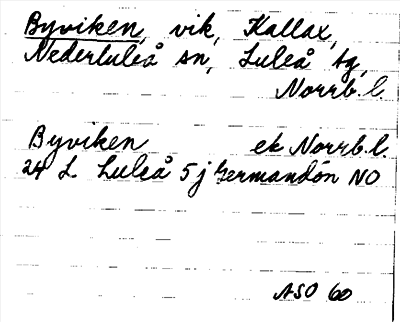 Byviken, vik, Kallax,
Nederluleå sn, Luleå tg,
Norrb. l.
Byviken ek Norrb. l.
24 L. Luleå 5 j Germandön NO
ASO 60